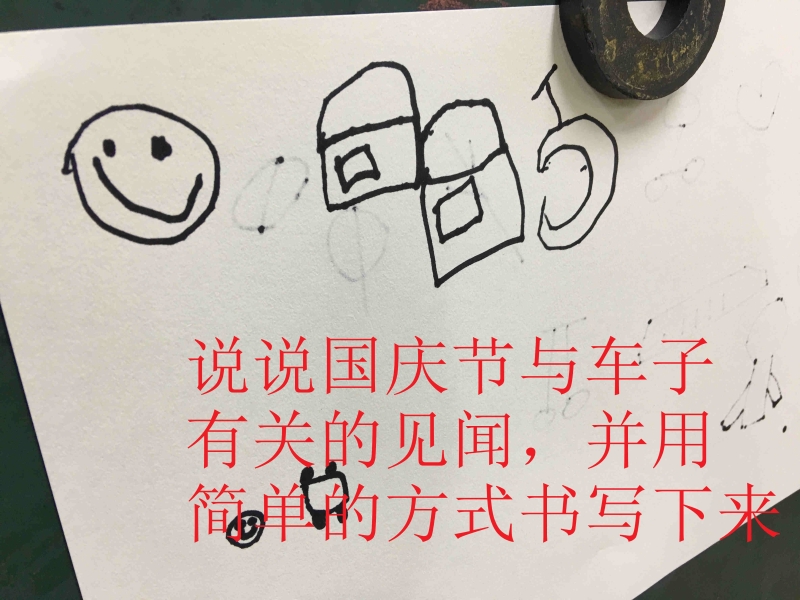 说说国庆节与车子
有关的见闻，并用
简单的方式书写下来